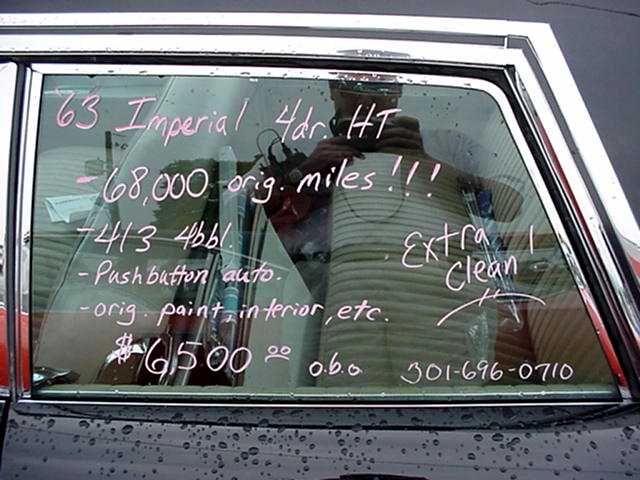 '63 Imperial 4dr. HT
-68,000 orig. miles!!!
-413 4bbl.
-Pushbutton auto.
-orig. paint, interior, etc.
Extra
Clean!
$6,500 00 o.b.o 301-696-0710